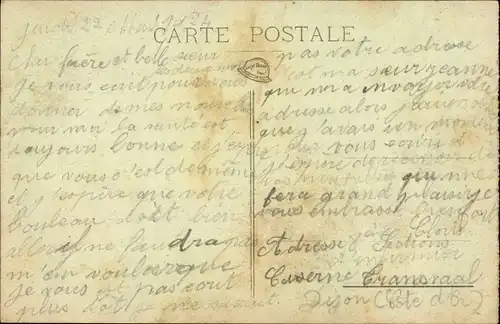 Jeudi 22 Mai 1924
CARTE POSTALE
Cher frère et belle sœur
je vous écrit pour vous
donner de mes nouvelles
pour moi la santé est
toujours bonne et j'espère
que vous c'est de même
et j'espère que votre
bouleau doit bien
aller il ne faudra pas
m'en vouloir que
je vous est pas écrit
plus tôt je me
pas votre adresse
c'est ma sœur jeanne
qui m'a envoyer votre
adresse alors
que j'avais un moment
pour vous écrire
qui me
fera grand plaisir je
vous embrasse bien fort
Clovis
Adresse Sections
d'infirmier
Caserne Transvaal
Dijon (Côte d'Or)